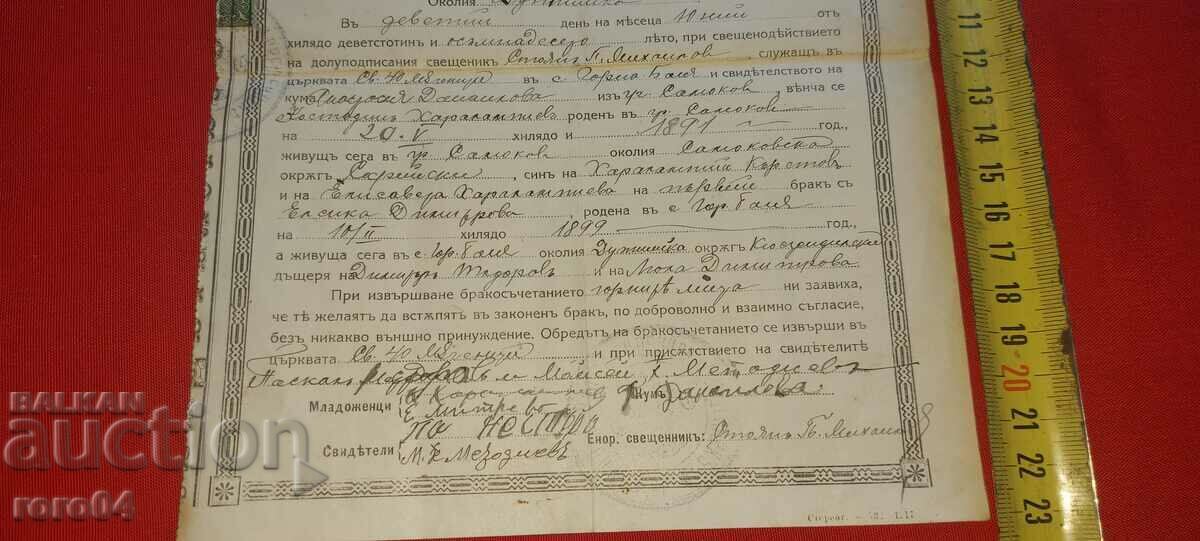 Околия Дупнишка
Въ деветий день на месеца Юний отъ
хилядо деветстотин и осемнадесето лѣто, при свещенодѣйствието
на долуподписания свещеникъ Стоянъ П. Михаилов служащъ въ
църквата Св. 40 Мѫченици въ с. Горна Баня и свидетелството на
кума Анастасия Данаилова изъ гр. Самоков, вѣнча се
Костадинъ Харалампиев роденъ въ гр. Самоков
на 20. V хилядо и 1891 год.,
живущъ сега въ гр. Самоков околия Самоковска
окрѫгъ Софийски, синъ на Харалампий Кръстов
и на Елисавета Харалампиева на първий бракъ съ
Елсика Димитрова, родена въ с. Гор. Баня
на 10/II хилядо 1899 год.,
а живуща сега въ с. Гор. Баня околия Дупнишка окрѫгъ Кюстендилски
дъщеря на Димитръ Тодоровъ и на Лола Димитрова
При извършване бракосъчетанието горнитѣ лица ни заявиха,
че тѣ желаятъ да встѫпятъ въ законенъ бракъ, по доброволно и взаимно съгласие,
безъ никакво външно принуждение. Обредътъ на бракосъчетанието се извърши въ
църквата Св. 40 Мѫченици и при присѫтствието на свидѣтелите
Паскалъ и Мойсей х. Методиевъ
Младоженци { Кумъ: Данаилова
Е. Митрева
Свидѣтели { Енор. свещеникъ: Стоянъ П. Михаилов
М. х. Методиевъ
BALKAN
auction
roro04
11 12 13 14 15 16 17 18 19 20 21 22 23